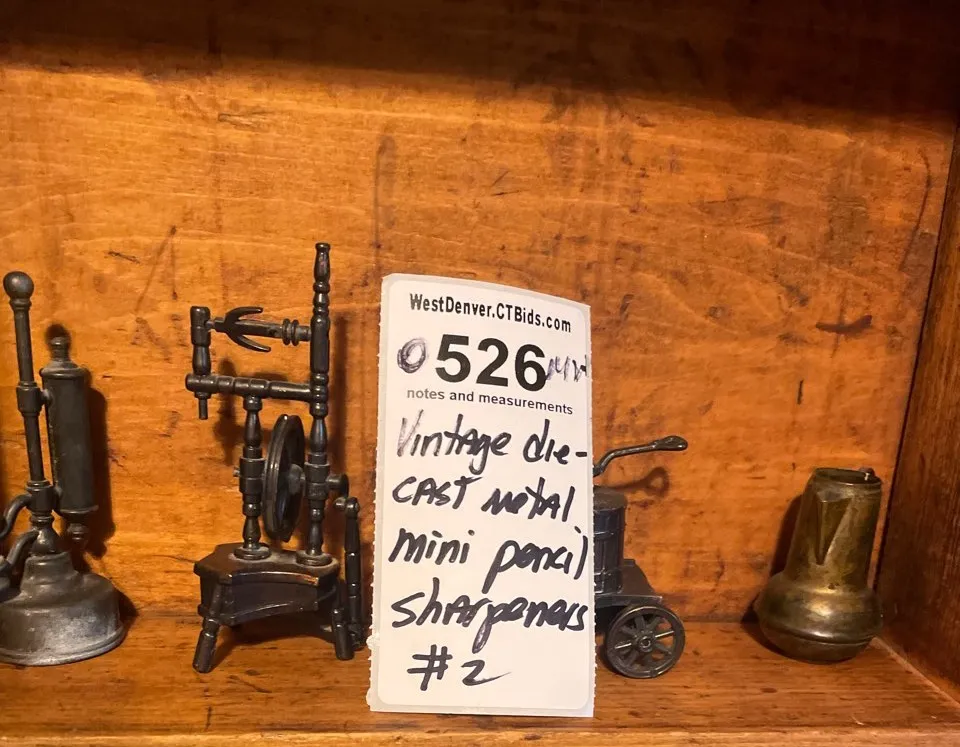 WestDenver.CTBids.com
0526
notes and measurements
Vintage die-
cast metal
mini pencil
sharpeners
#2